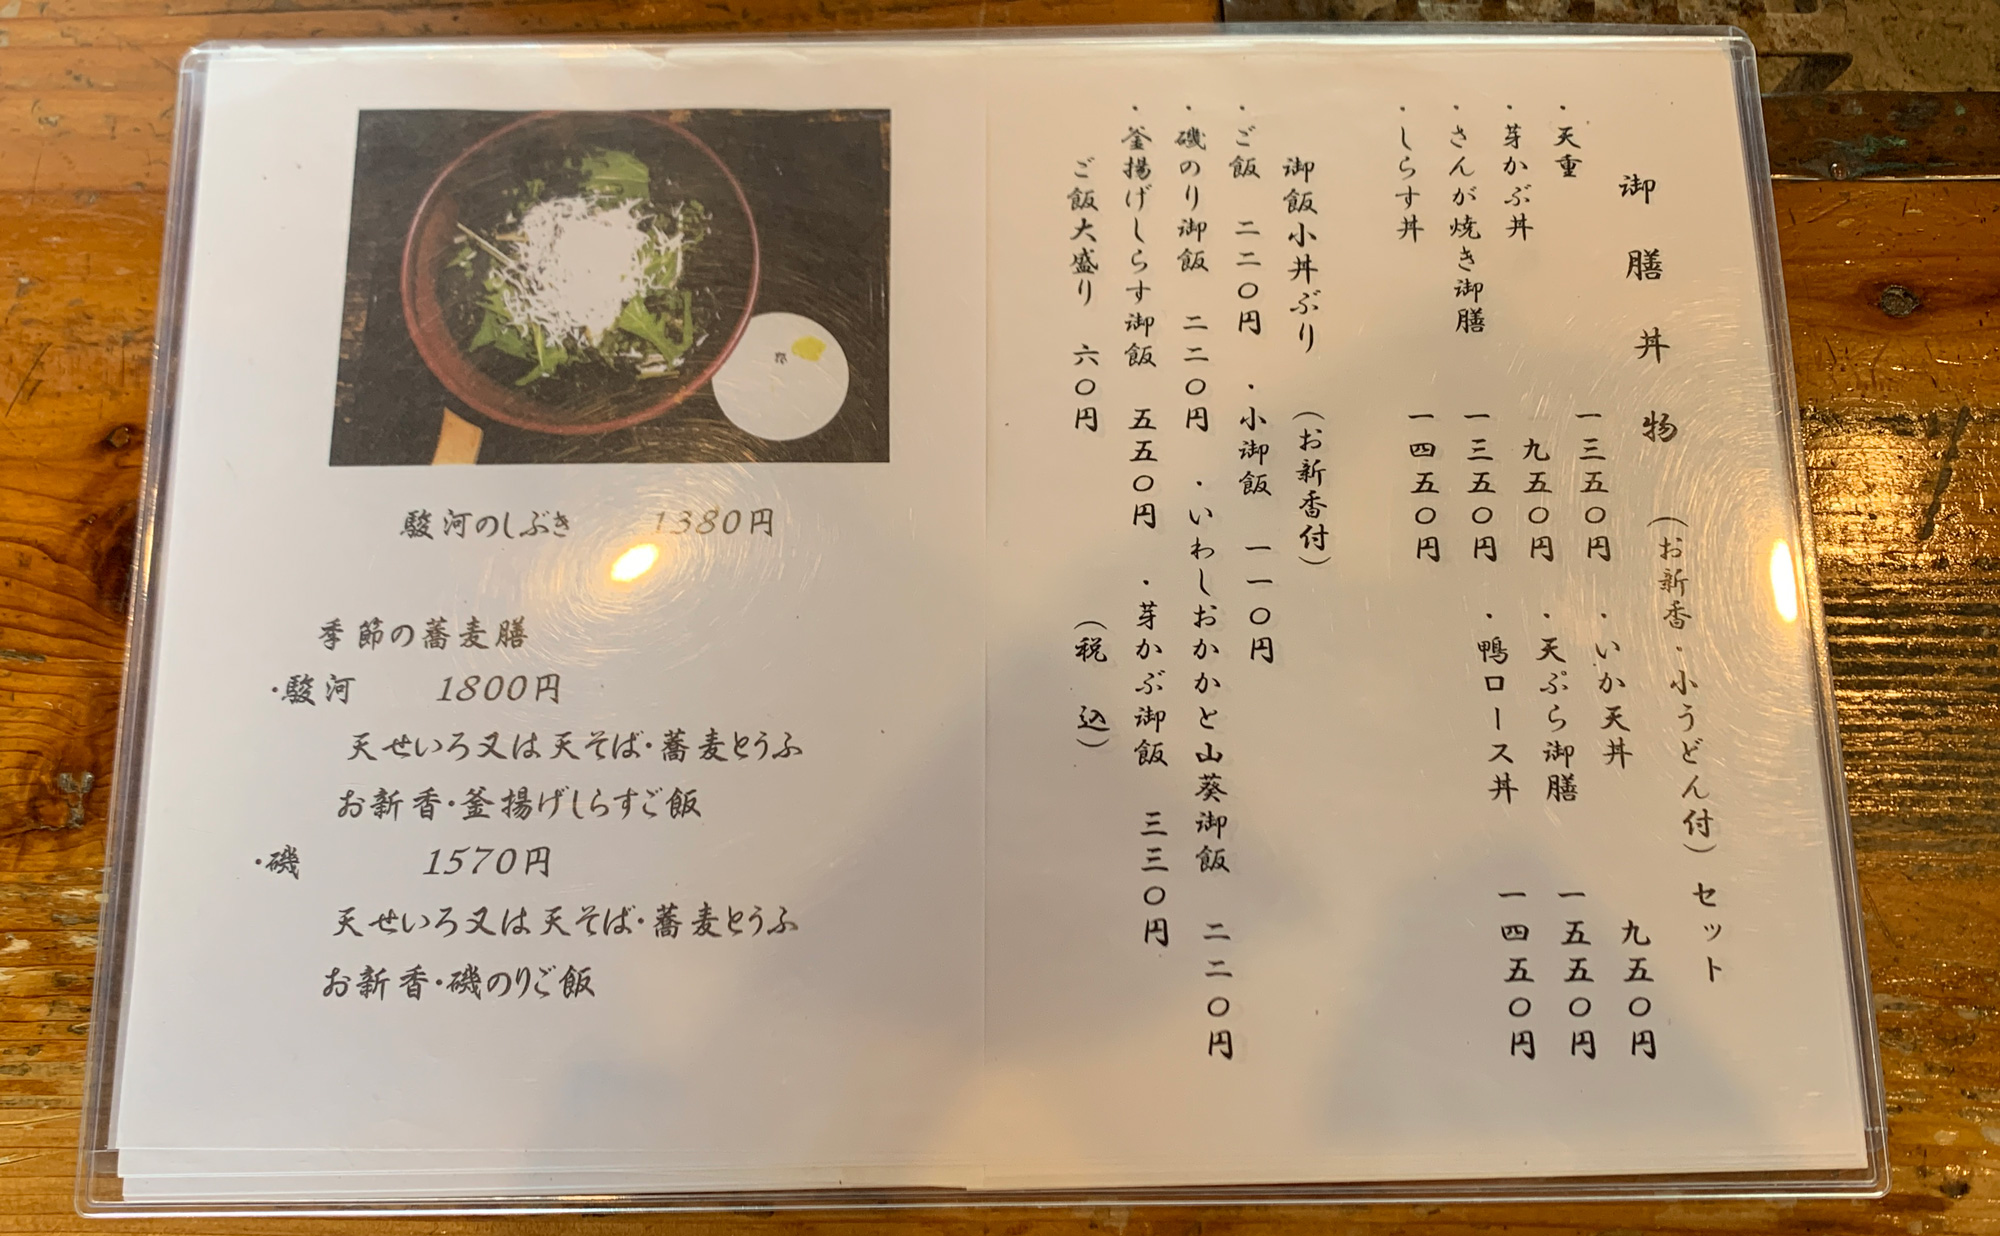 御膳丼物（お新香・小うどん付）セット
・天重 一三五〇円 ・いか天丼 九五〇円
・芽かぶ丼 九五〇円 ・天ぷら御膳 一五五〇円
・さんが焼き御膳 一三五〇円 ・鴨ロース丼 一四五〇円
・しらす丼 一四五〇円
御飯小丼ぶり（お新香付）
・ご飯 二二〇円 ・小御飯 一一〇円
・磯のり御飯 二二〇円 ・いわしおかかと山葵御飯 二二〇円
・釜揚げしらす御飯 五五〇円 ・芽かぶ御飯 三三〇円
ご飯大盛り 六〇円 （税込）
駿河のしぶき 1380円
季節の蕎麦膳
・駿河 1800円
天せいろ又は天そば・蕎麦とうふ
お新香・釜揚げしらすご飯
・磯 1570円
天せいろ又は天そば・蕎麦とうふ
お新香・磯のりご飯